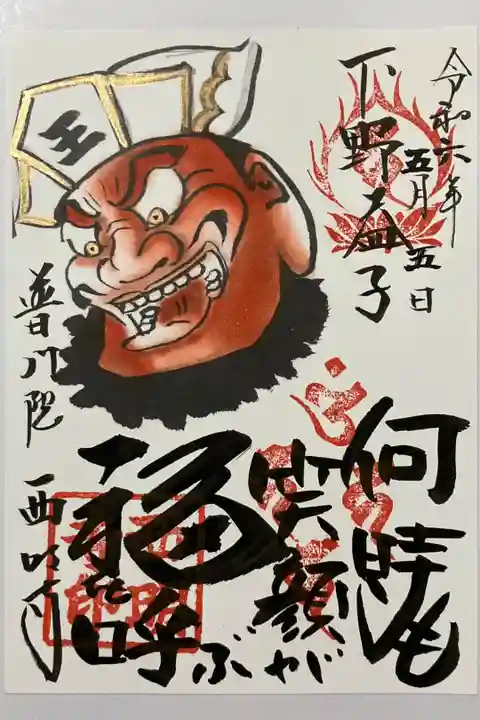 令和六年
五月五日
下野益子
王
何時も
笑顔が
福
呼ぶ
普門院
西明寺
西明寺印